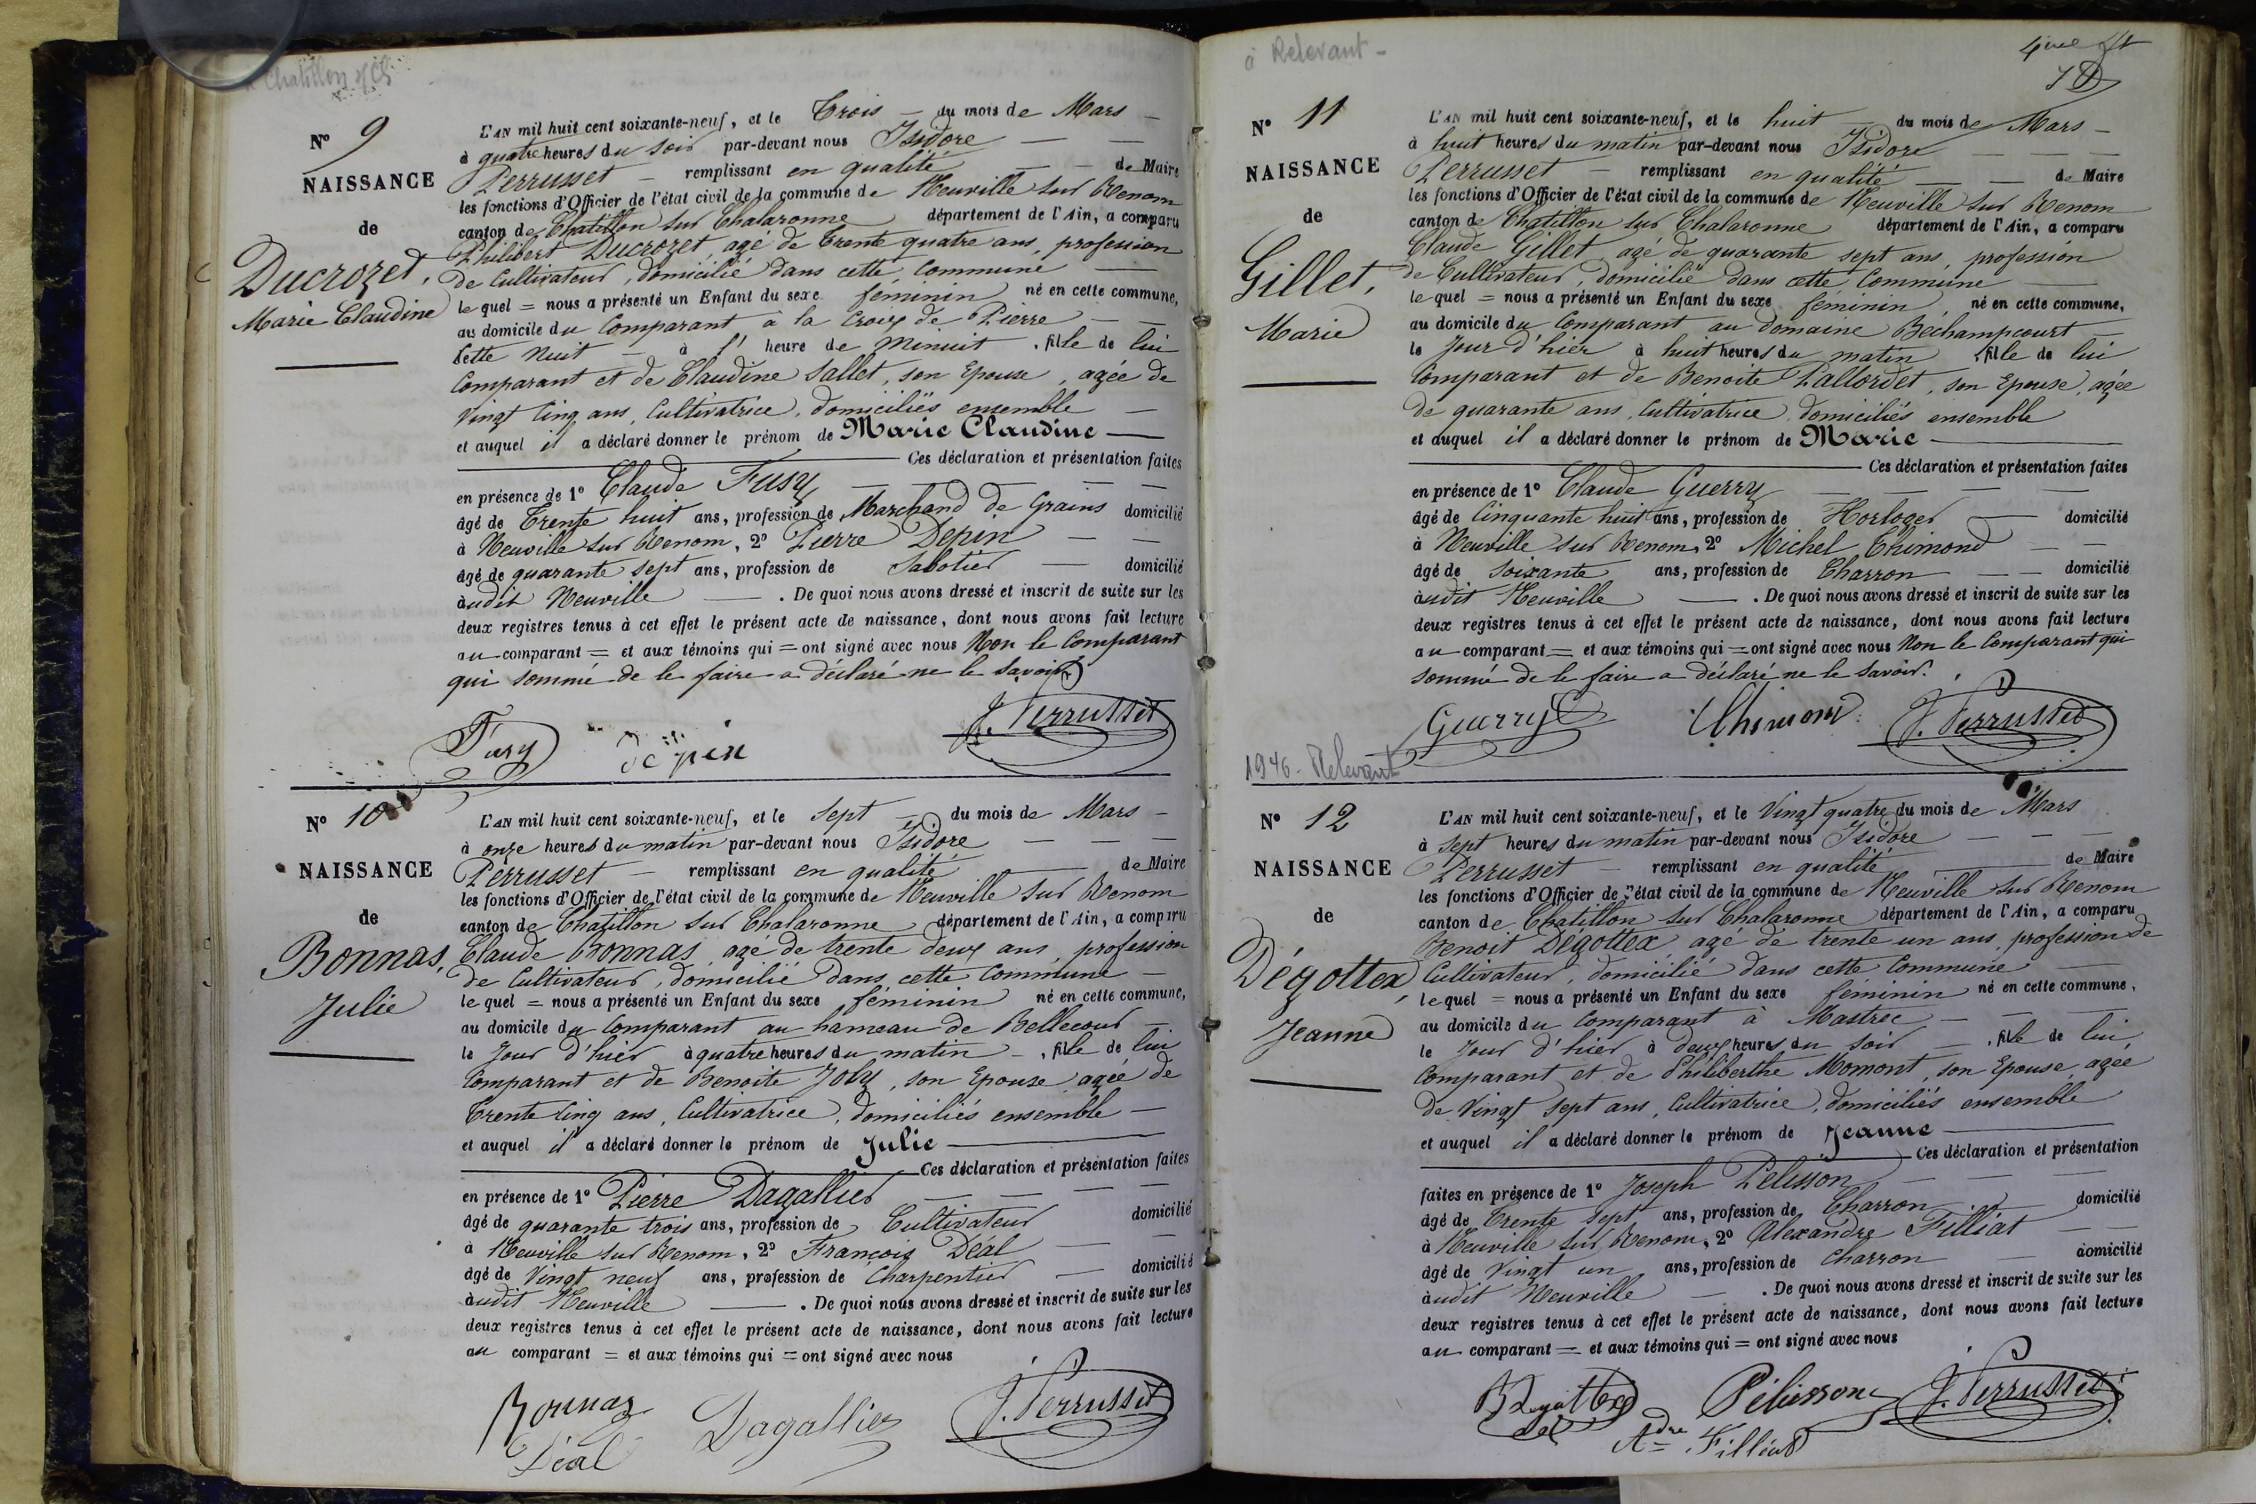 Chatillon s/Ch
N° 9
NAISSANCE
de
Ducrozet,
Marie Claudine
L'AN mil huit cent soixante-neuf, et le Trois — du mois de Mars —
à quatre heures du soir par-devant nous Isidore — —
Perrusset — remplissant en qualité — — de Maire
les fonctions d'Officier de l'état civil de la commune de Neuville sur Renom
canton de Chatillon sur Chalaronne département de l'Ain, a comparu
Philibert Ducrozet, agé de trente quatre ans, profession
de Cultivateur, domicilié dans cette Commune —
le quel = nous a présenté un Enfant du sexe féminin né en cette commune,
au domicile du Comparant à la Croix de Pierre — —
Cette Nuit — à l' heure de Minuit , fille de lui
Comparant et de Claudine Sallet, son Epouse, agée de
Vingt Cinq ans, Cultivatrice, domiciliés ensemble —
et auquel il a déclaré donner le prénom de Marie Claudine —
— Ces déclaration et présentation faites
en présence de 1° Claude Fusy — — — —
âgé de Trente huit ans, profession de Marchand de Grains domicilié
à Neuville sur Renom, 2° Pierre Depin — —
âgé de quarante sept ans, profession de Sabotier — domicilié
àudit Neuville — . De quoi nous avons dressé et inscrit de suite sur les
deux registres tenus à cet effet le présent acte de naissance, dont nous avons fait lecture
au comparant = et aux témoins qui = ont signé avec nous Non le Comparant
qui sommé de le faire a déclaré ne le savoir
Fusy depin J. Perrusset
N° 10
NAISSANCE
de
Bonnas,
Julie
L'AN mil huit cent soixante-neuf, et le Sept — du mois de Mars —
à onze heures du matin par-devant nous Isidore — —
Perrusset — remplissant en qualité — de Maire
les fonctions d'Officier de l'état civil de la commune de Neuville sur Renom
canton de Chatillon sur Chalaronne département de l'Ain, a comparu
Claude Bonnas, agé de trente deux ans, profession
de Cultivateur, domicilié dans cette Commune —
le quel = nous a présenté un Enfant du sexe féminin né en cette commune,
au domicile du Comparant au hameau de Bellecour —
le Jour d'hier à quatre heures du matin — , fille de lui
Comparant et de Benoite Joly, son Epouse agée de
Trente Cinq ans, Cultivatrice, domiciliés ensemble —
et auquel il a déclaré donner le prénom de Julie —
— Ces déclaration et présentation faites
en présence de 1° Pierre Dagallier — — — —
âgé de quarante trois ans, profession de Cultivateur domicilié
à Neuville sur Renom, 2° François Déal — —
âgé de Vingt neuf ans, profession de Charpentier — domicilié
àudit Neuville — . De quoi nous avons dressé et inscrit de suite sur les
deux registres tenus à cet effet le présent acte de naissance, dont nous avons fait lecture
au comparant = et aux témoins qui = ont signé avec nous
Bonnas Dagallier J. Perrusset
Déal
à Relevant -
N° 11
NAISSANCE
de
Gillet,
Marie
L'AN mil huit cent soixante-neuf, et le huit — du mois de Mars —
à huit heures du matin par-devant nous Isidore — — —
Perrusset — remplissant en qualité — — de Maire
les fonctions d'Officier de l'état civil de la commune de Neuville sur Renom
canton de Chatillon sur Chalaronne département de l'Ain, a comparu
Claude Gillet, agé de quarante sept ans, profession
de Cultivateur, domicilié dans cette Commune —
le quel = nous a présenté un Enfant du sexe féminin né en cette commune,
au domicile du Comparant au domaine Béchampcourt —
le Jour d'hier à huit heures du matin , fille de lui
Comparant et de Benoite Pallordet, son Epouse, agée
de quarante ans, Cultivatrice, domiciliés ensemble
et auquel il a déclaré donner le prénom de Marie —
— Ces déclaration et présentation faites
en présence de 1° Claude Guerry — — — —
âgé de Cinquante huit ans, profession de Horloger — domicilié
à Neuville sur Renom, 2° Michel Thimond — —
âgé de Soixante ans, profession de Charron — — domicilié
àudit Neuville — . De quoi nous avons dressé et inscrit de suite sur les
deux registres tenus à cet effet le présent acte de naissance, dont nous avons fait lecture
au comparant = et aux témoins qui = ont signé avec nous Non le Comparant qui
sommé de le faire a déclaré ne le savoir.
Guerry Thimond J. Perrusset
1946 - Relevant
N° 12
NAISSANCE
de
Dégottex,
Jeanne
L'AN mil huit cent soixante-neuf, et le Vingt quatre du mois de Mars
à Sept heures du matin par-devant nous Isidore — — —
Perrusset — remplissant en qualité — de Maire
les fonctions d'Officier de l'état civil de la commune de Neuville sur Renom
canton de Chatillon sur Chalaronne département de l'Ain, a comparu
Benoit Dégottex agé de trente un ans, profession de
Cultivateur, domicilié dans cette Commune —
le quel = nous a présenté un Enfant du sexe féminin né en cette commune,
au domicile du Comparant à Mastrec — — —
le Jour d'hier à deux heures du soir — , fille de lui
Comparant et de Philiberthe Momont, son Epouse, agée
de Vingt sept ans, Cultivatrice, domiciliés ensemble
et auquel il a déclaré donner le prénom de Jeanne —
— Ces déclaration et présentation
faites en présence de 1° Joseph Pelisson — —
âgé de Trente sept ans, profession de Charron — domicilié
à Neuville sur Renom, 2° Alexandre Filliat — —
âgé de Vingt un ans, profession de Charron — domicilié
àudit Neuville — . De quoi nous avons dressé et inscrit de suite sur les
deux registres tenus à cet effet le présent acte de naissance, dont nous avons fait lecture
au comparant = et aux témoins qui = ont signé avec nous
Pélisson J. Perrusset
Adre Filliat